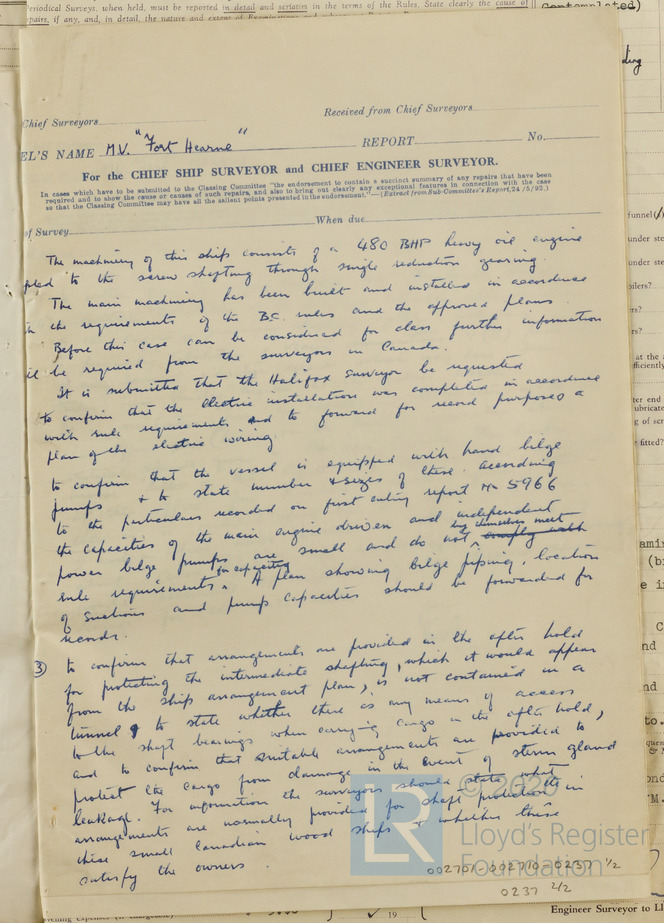 Periodical Surveys, when held, must be reported in detail and seriatim in the terms of the Rules. State clearly the cause of
repairs, if any, and, in detail, the nature and extent of
contemplated)
Chief Surveyors
Received from Chief Surveyors
EL'S NAME M.V. "Fort Hearne" REPORT No.
For the CHIEF SHIP SURVEYOR and CHIEF ENGINEER SURVEYOR.
In cases which have to be submitted to the Classing Committee "the endorsement to contain a succinct summary of any repairs that have been
required and to show the cause or causes of such repairs, and also to bring out clearly any exceptional features in connection with the case
so that the Classing Committee may have all the salient points presented in the endorsement."—(Extract from Sub-Committee's Report, 24/5/92.)
of Survey When due
The machinery of this ship consists of a 480 BHP heavy oil engine
pled to the screw shafting through single reduction gearing.
The main machinery has been built and installed in accordance
the requirements of the BC rules and the approved plans.
Before this case can be considered for class further information
ll be required from the surveyors in Canada.
It is submitted that the Halifax surveyor be requested
to confirm that the electric installation was completed in accordance
with rule requirements and to forward for record purposes a
plan of the electric wiring
to confirm that the vessel is equipped with hand bilge
pumps & to state number & sizes of these. According
to the particulars recorded on first entry report No 5966
the capacities of the main engine driven and independent
power bilge pumps are small and do not by themselves meet comply with
rule requirements in capacity. A plan showing bilge piping, location
of suctions and pump capacities should be forwarded for
records.
3 to confirm that arrangements are provided in the after hold
for protecting the intermediate shafting, which it would appear
from the ship arrangement plan, is not contained in a
tunnel & to state whether there is any means of access
to the shaft bearings when carrying cargo in the after hold,
and to confirm that suitable arrangements are provided to
protect the cargo from damage in the event of stern gland
leakage. For information the surveyors should state what
arrangements are normally provided for shaft protection in
these small Canadian wood ships & whether these
satisfy the owners.
© 2020
LR
Lloyd's Register
Foundation
002701-002710-0237 1/2
0237 2/2
19
Engineer Surveyor to Ll